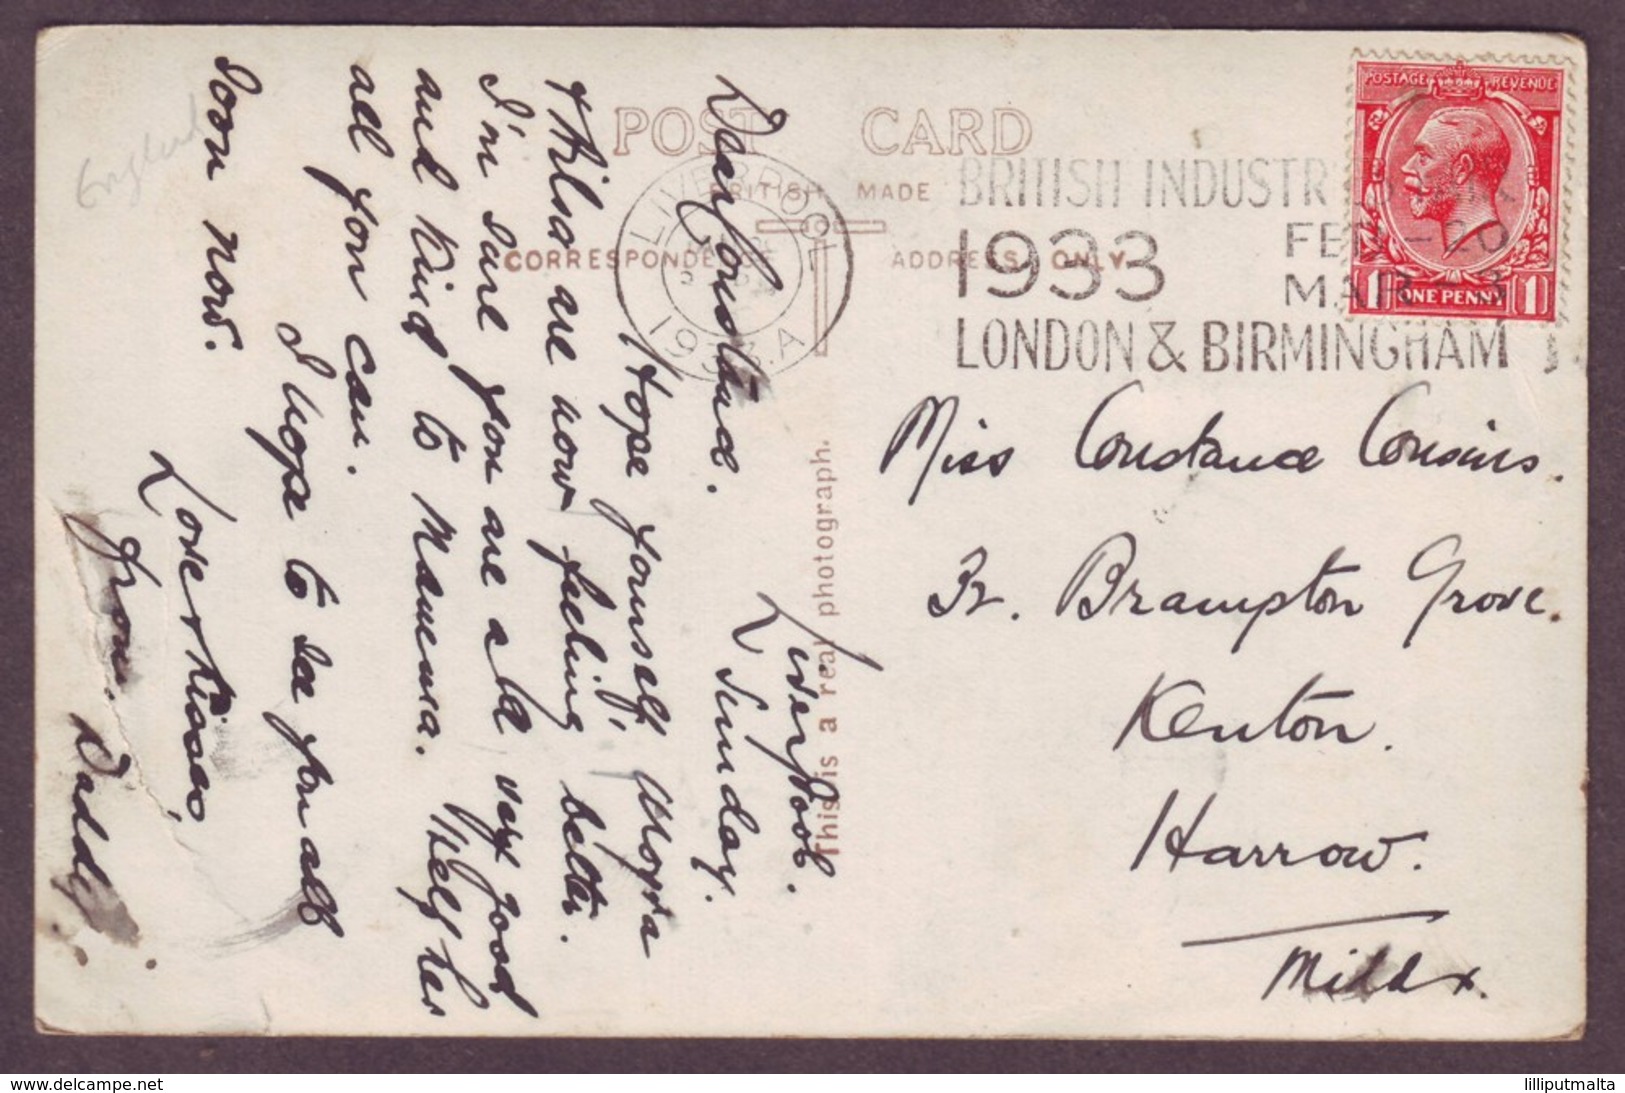 POST CARD
BRITISH MADE
CORRESPONDENCE ADDRESS ONLY
This is a real photograph.
LIVERPOOL
19 A
BRITISH INDUSTRIES FAIR
1933 FEB - 20
MAR - 3
LONDON & BIRMINGHAM
POSTAGE REVENUE
1 ONE PENNY 1
England
Liverpool.
Sunday.
Dear Constance.
Hope yourself Moyra
& Thelsa are now feeling better.
I'm sure you are a be very good
and kind to Mamma. Help her
all you can.
I hope to see you all
soon now.
Love & kisses,
from Daddy.
Miss Constance Cousins.
Brampton Grove.
Kenton.
Harrow.
Middx.
delcampe.net
lilliputmalta